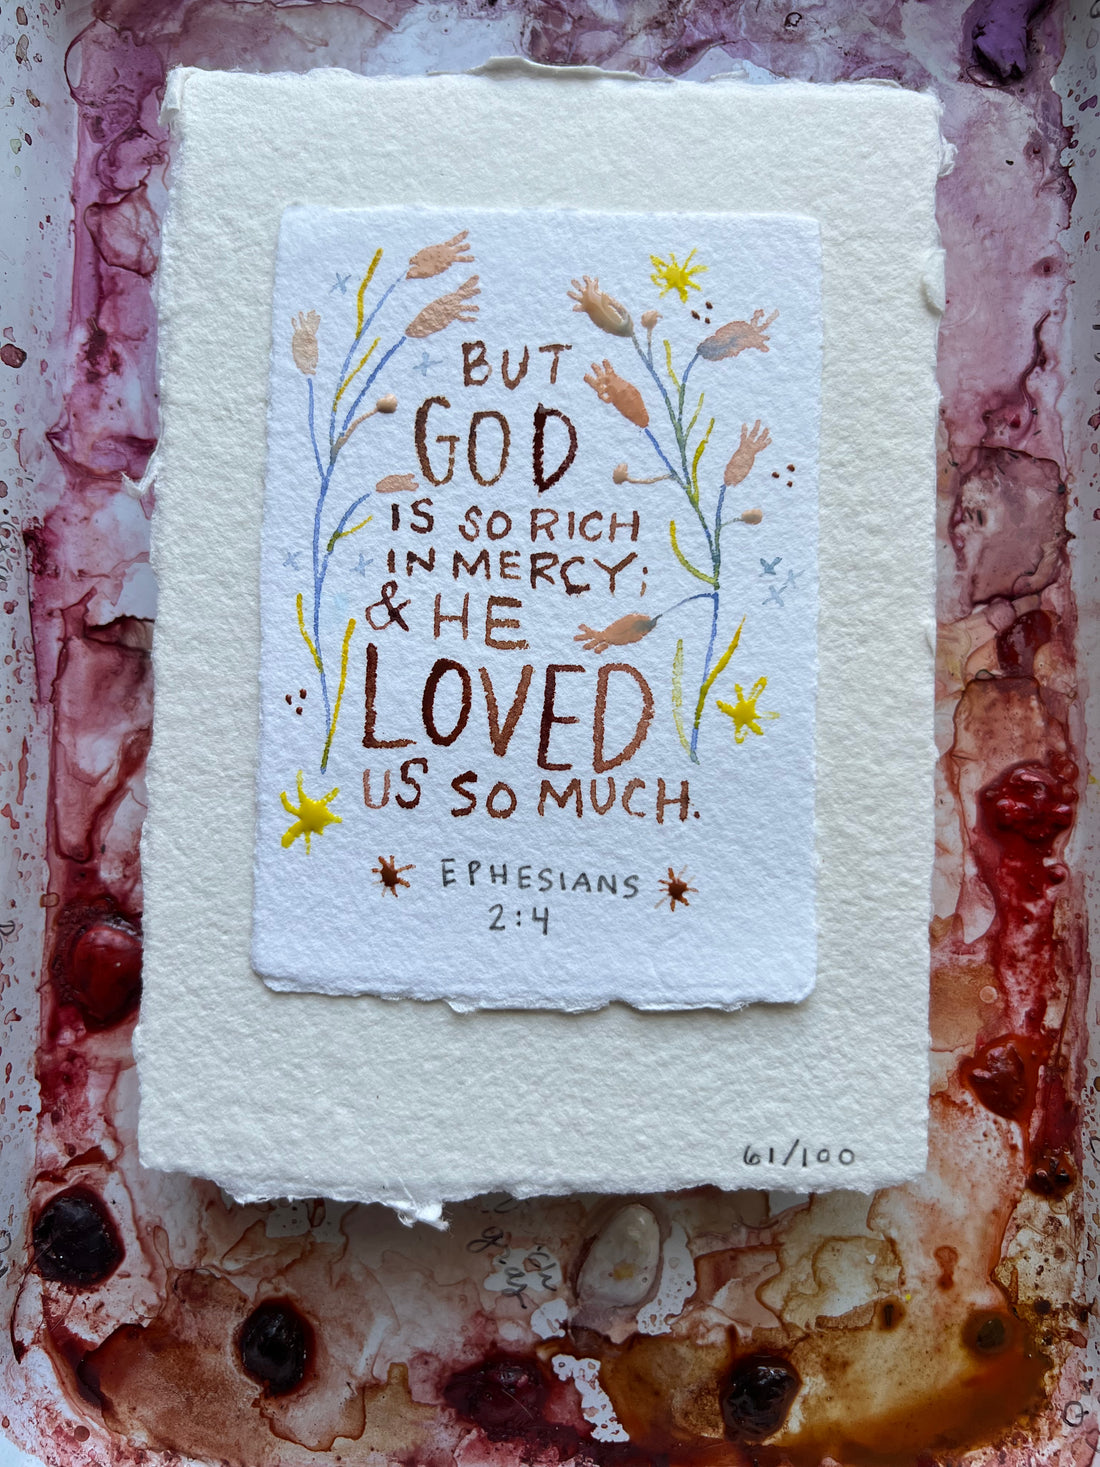 BUT
GOD
IS SO RICH
IN MERCY;
& HE
LOVED
US SO MUCH.
EPHESIANS
2:4
61/100